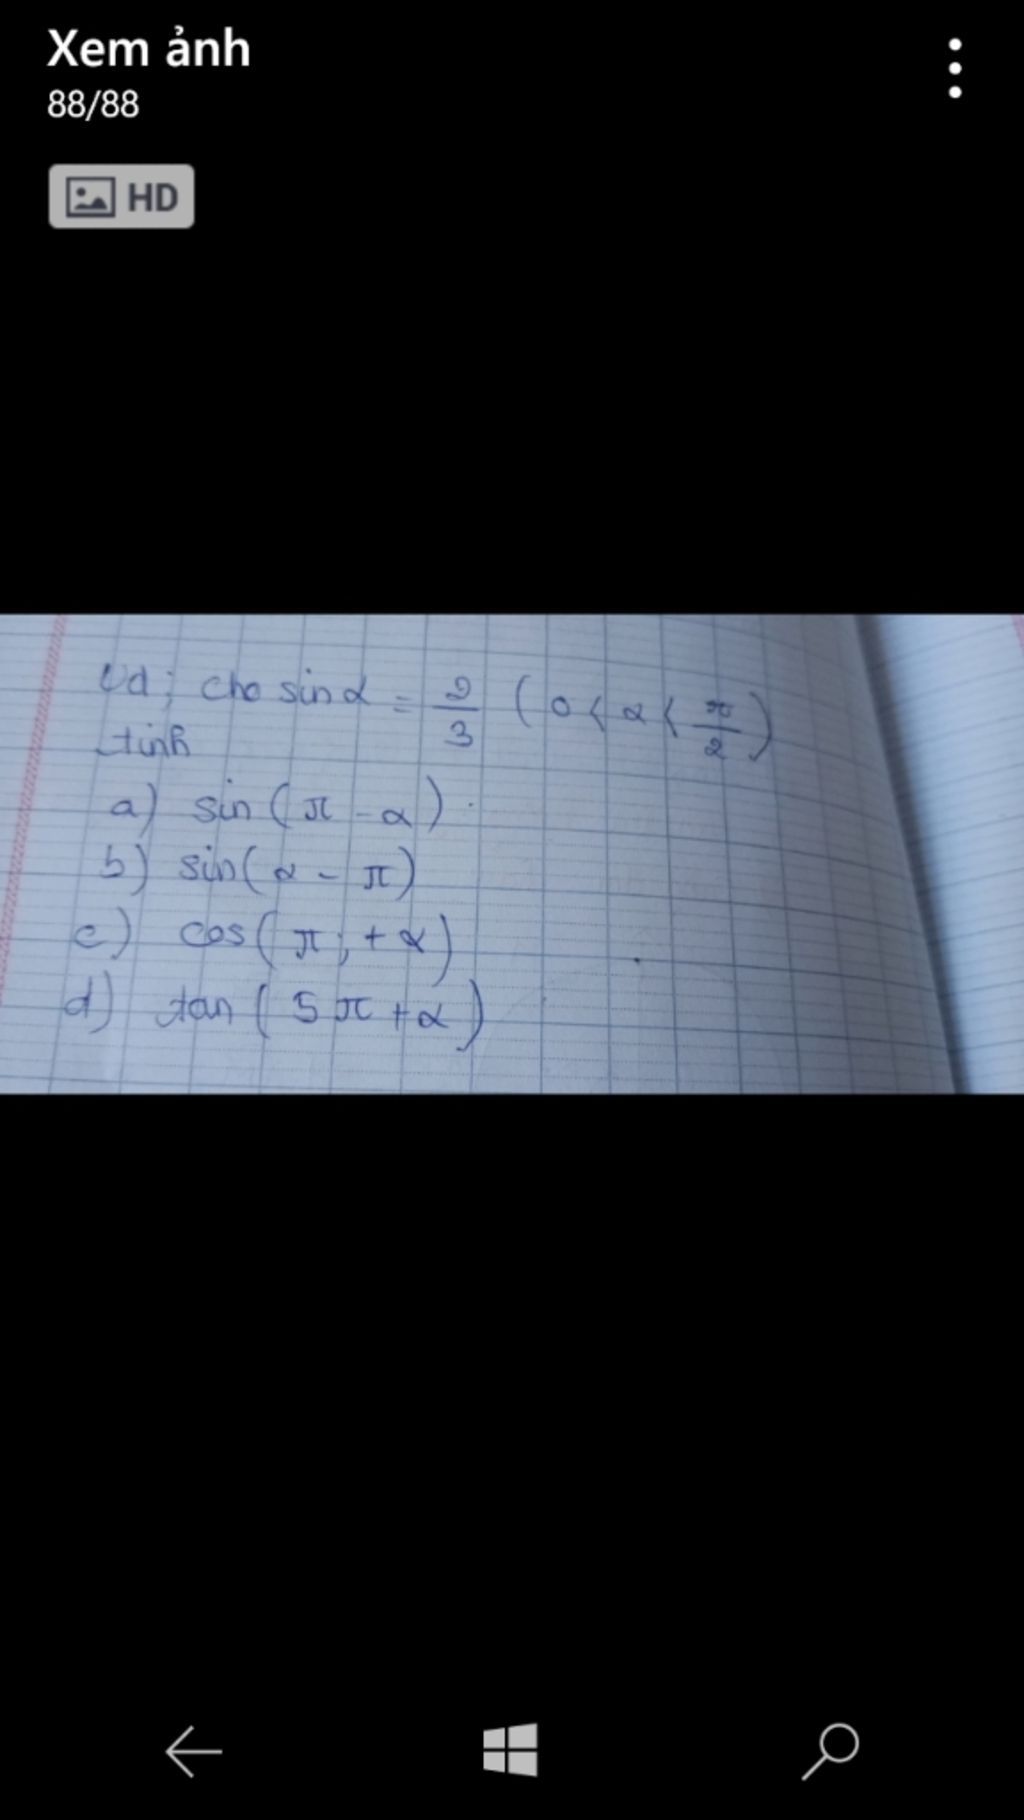 Xem ảnh
88/88
HD
Vd; cho sin α = 2/3 (0 < α < π/2)
tính
a) sin (π - α).
b) sin(α - π)
c) cos(π; + α)
d) tan (5π + α)